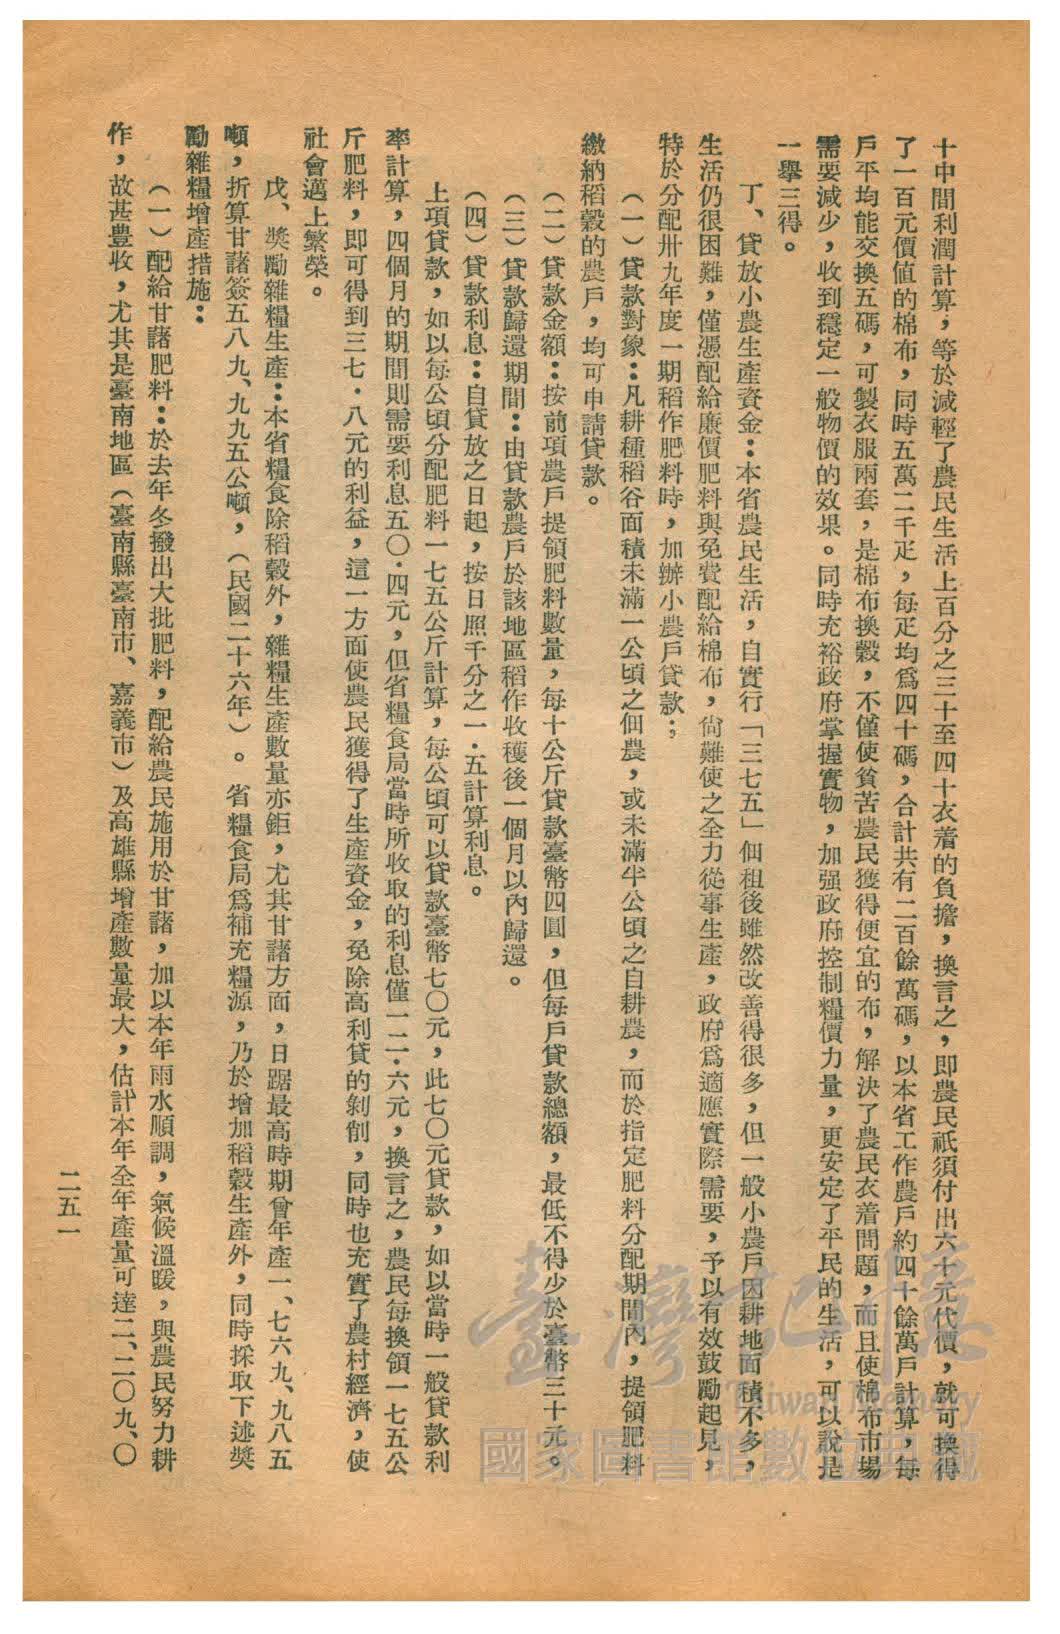 十中間利潤計算，等於減輕了農民生活上百分之三十至四十衣着的負擔，換言之，即農民祇須付出六十元代價，就可換得
了一百元價值的棉布，同時五萬二千疋，每疋均爲四十碼，合計共有二百餘萬碼，以本省工作農戶約四十餘萬戶計算，每
戶平均能交換五碼，可製衣服兩套，是棉布換穀，不僅使貧苦農民獲得便宜的布，解決了農民衣着問題，而且使棉布市場
需要減少，收到穩定一般物價的效果。同時充裕政府掌握實物，加强政府控制糧價力量，更安定了平民的生活，可以說是
一舉三得。
丁、貸放小農生產資金：本省農民生活，自實行「三七五」佃租後雖然改善得很多，但一般小農戶因耕地面積不多，
生活仍很困難，僅憑配給廉價肥料與免費配給棉布，尙難使之全力從事生產，政府爲適應實際需要，予以有效鼓勵起見，
特於分配卅九年度一期稻作肥料時，加辦小農戶貸款；
（一）貸款對象：凡耕種稻谷面積未滿一公頃之佃農，或未滿半公頃之自耕農，而於指定肥料分配期間內，提領肥料
繳納稻穀的農戶，均可申請貸款。
（二）貸款金額：按前項農戶提領肥料數量，每十公斤貸款臺幣四圓，但每戶貸款總額，最低不得少於臺幣三十元。
（三）貸款歸還期間：由貸款農戶於該地區稻作收穫後一個月以內歸還。
（四）貸款利息：自貸放之日起，按日照千分之一．五計算利息。
上項貸款，如以每公頃分配肥料一七五公斤計算，每公頃可以貸款臺幣七〇元，此七〇元貸款，如以當時一般貸款利
率計算，四個月的期間則需要利息五〇．四元，但省糧食局當時所收取的利息僅一二．六元，換言之，農民每換領一七五公
斤肥料，即可得到三七．八元的利益，這一方面使農民獲得了生產資金，免除高利貸的剝削，同時也充實了農村經濟，使
社會邁上繁榮。
戊、獎勵雜糧生產：本省糧食除稻穀外，雜糧生產數量亦鉅，尤其甘諸方面，日踞最高時期曾年產一、七六九、九八五
噸，折算甘諸簽五八九、九九五公噸，（民國二十六年）。省糧食局爲補充糧源，乃於增加稻穀生產外，同時採取下述獎
勵雜糧增產措施：
（一）配給甘諸肥料：於去年冬撥出大批肥料，配給農民施用於甘諸，加以本年雨水順調，氣候溫暖，與農民努力耕
作，故甚豊收，尤其是臺南地區（臺南縣臺南市、嘉義市）及高雄縣增產數量最大，估計本年全年產量可達二、二〇九、〇
二五一
臺灣記憶
Taiwan Memory
國家圖書館數位典藏